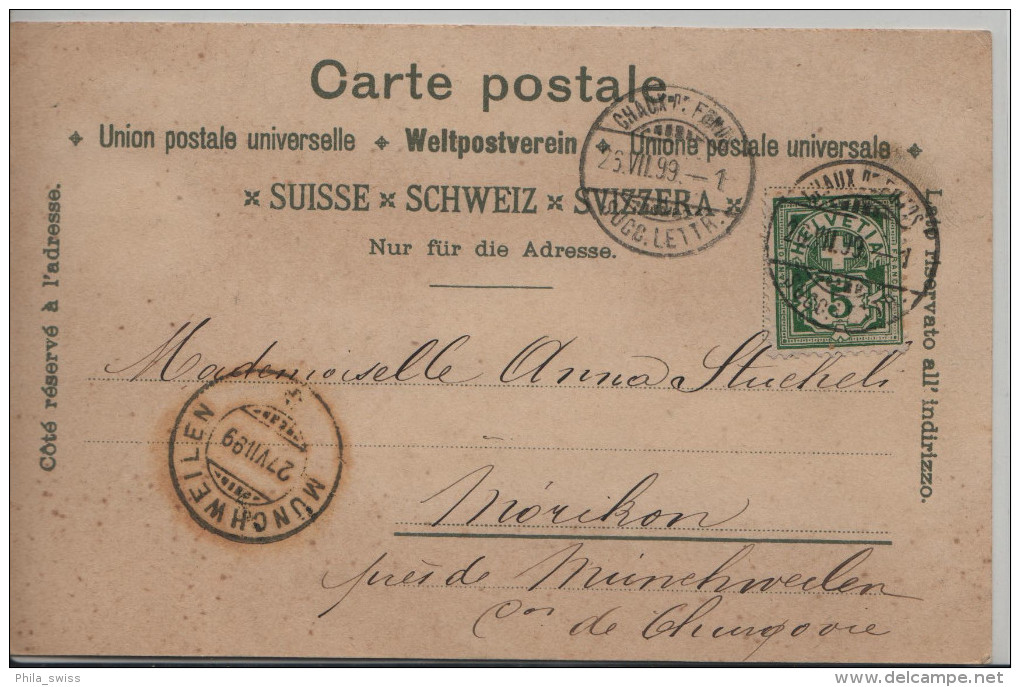 Carte postale
Union postale universelle Weltpostverein Unione postale universale
SUISSE SCHWEIZ SVIZZERA
Nur für die Adresse.
Côté réservé à l'adresse.
Lato riservato all' indirizzo.
CHAUX-DE-FONDS
26.VII.99.–1
SUCC. LETTR.
CHAUX-DE-FONDS
VII.99.–1
SUCC.
HELVETIA
5
Mademoiselle Anna Stucheli
Mörikon
près de Münchweilen
Con de Thurgovie
MÜNCHWEILEN
27.VII.99
Phila_swiss
delcampe.net